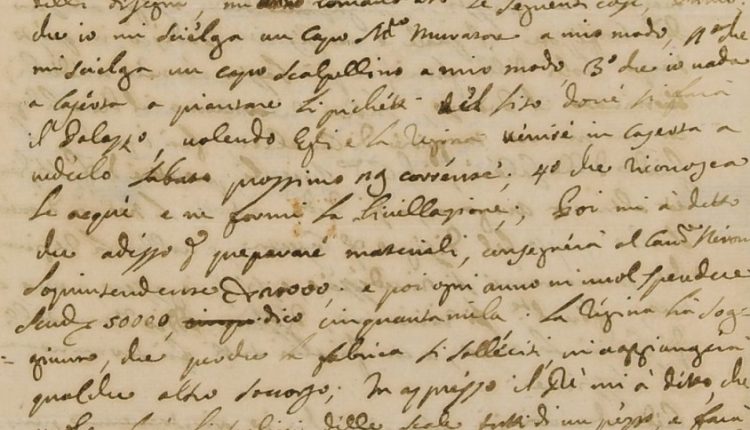 delli disegni, mi comandato le seguenti cose, primo
che io mi scielga un Capo Mro Muratore a mio modo,
mi scielga un capo scalpellino a mio modo, 3º che io vada
a Caserta a piantare li pichetti del sito dove si farà
il Palazzo, volendo Egli e la Regina venire in Caserta a
vederlo sabato prossimo 19 corrente; 4º che riconosca
le acque e ne formi la livellazione; Poi mi à detto
che adesso per preparare materiali, consegnerà al Cave Neroni
Soprintendente 20000, e poi ogni anno ni vuol spendere
Scudi 50000, dico cinquantamila. La Regina hà sog-
giunto, che perche la fabrica si solleciti, mi aggiungerà
qualche altro soccorso; In appresso il Rè mi à detto, che
delle scale tutti di un pezzo e farà